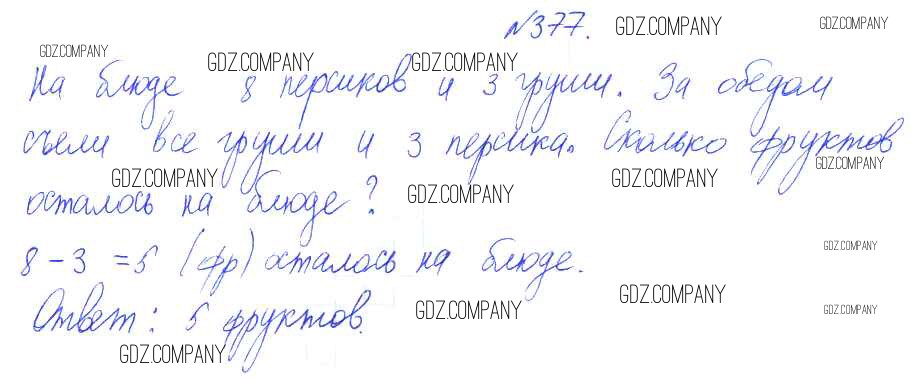 №377.
GDZ.COMPANY GDZ.COMPANY
GDZ.COMPANY GDZ.COMPANY GDZ.COMPANY
На блюде 8 персиков и 3 груши. За обедом
съели все груши и 3 персика. Сколько фруктов
GDZ.COMPANY GDZ.COMPANY GDZ.COMPANY GDZ.COMPANY
осталось на блюде?
8 - 3 = 5 (фр) осталось на блюде.
GDZ.COMPANY
Ответ: 5 фруктов.
GDZ.COMPANY GDZ.COMPANY GDZ.COMPANY
GDZ.COMPANY